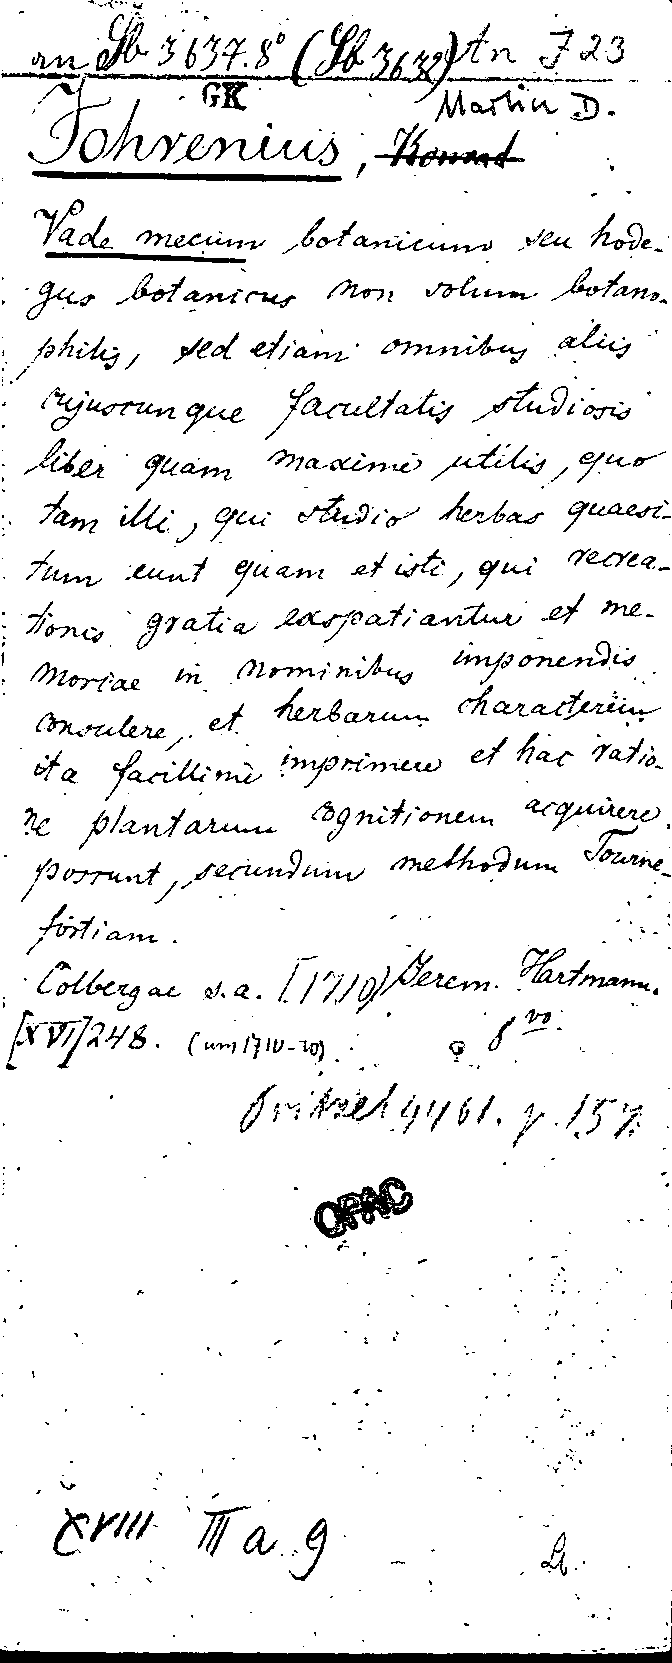 an Lb 3637.8° (Lb 3632) An J 23
GK
Martin D.
Johrenius, Konrad
Vade mecum botanicum seu hode-
gus botanicus non solum botano-
philis, sed etiam omnibus aliis
cujuscunque facultatis studiosis
liber quam maxime utilis, quo
tam illi, qui studio herbas quaesi-
tum eunt quam et isti, qui recrea-
tionis gratia exspatiantur et me-
moriae in nominibus imponendis
consulere, et herbarum characterem
ita facillime imprimere et hac ratio-
ne plantarum cognitionem acquirere
possunt, secundum methodum Tourne-
fortiam.
Colbergae s.a. [1710] Jerem. Hartmann.
[XVI] 248. (um 1710-20) 8vo.
Pritzel 4461. p. 157.
OPAC
XVIII III a 9